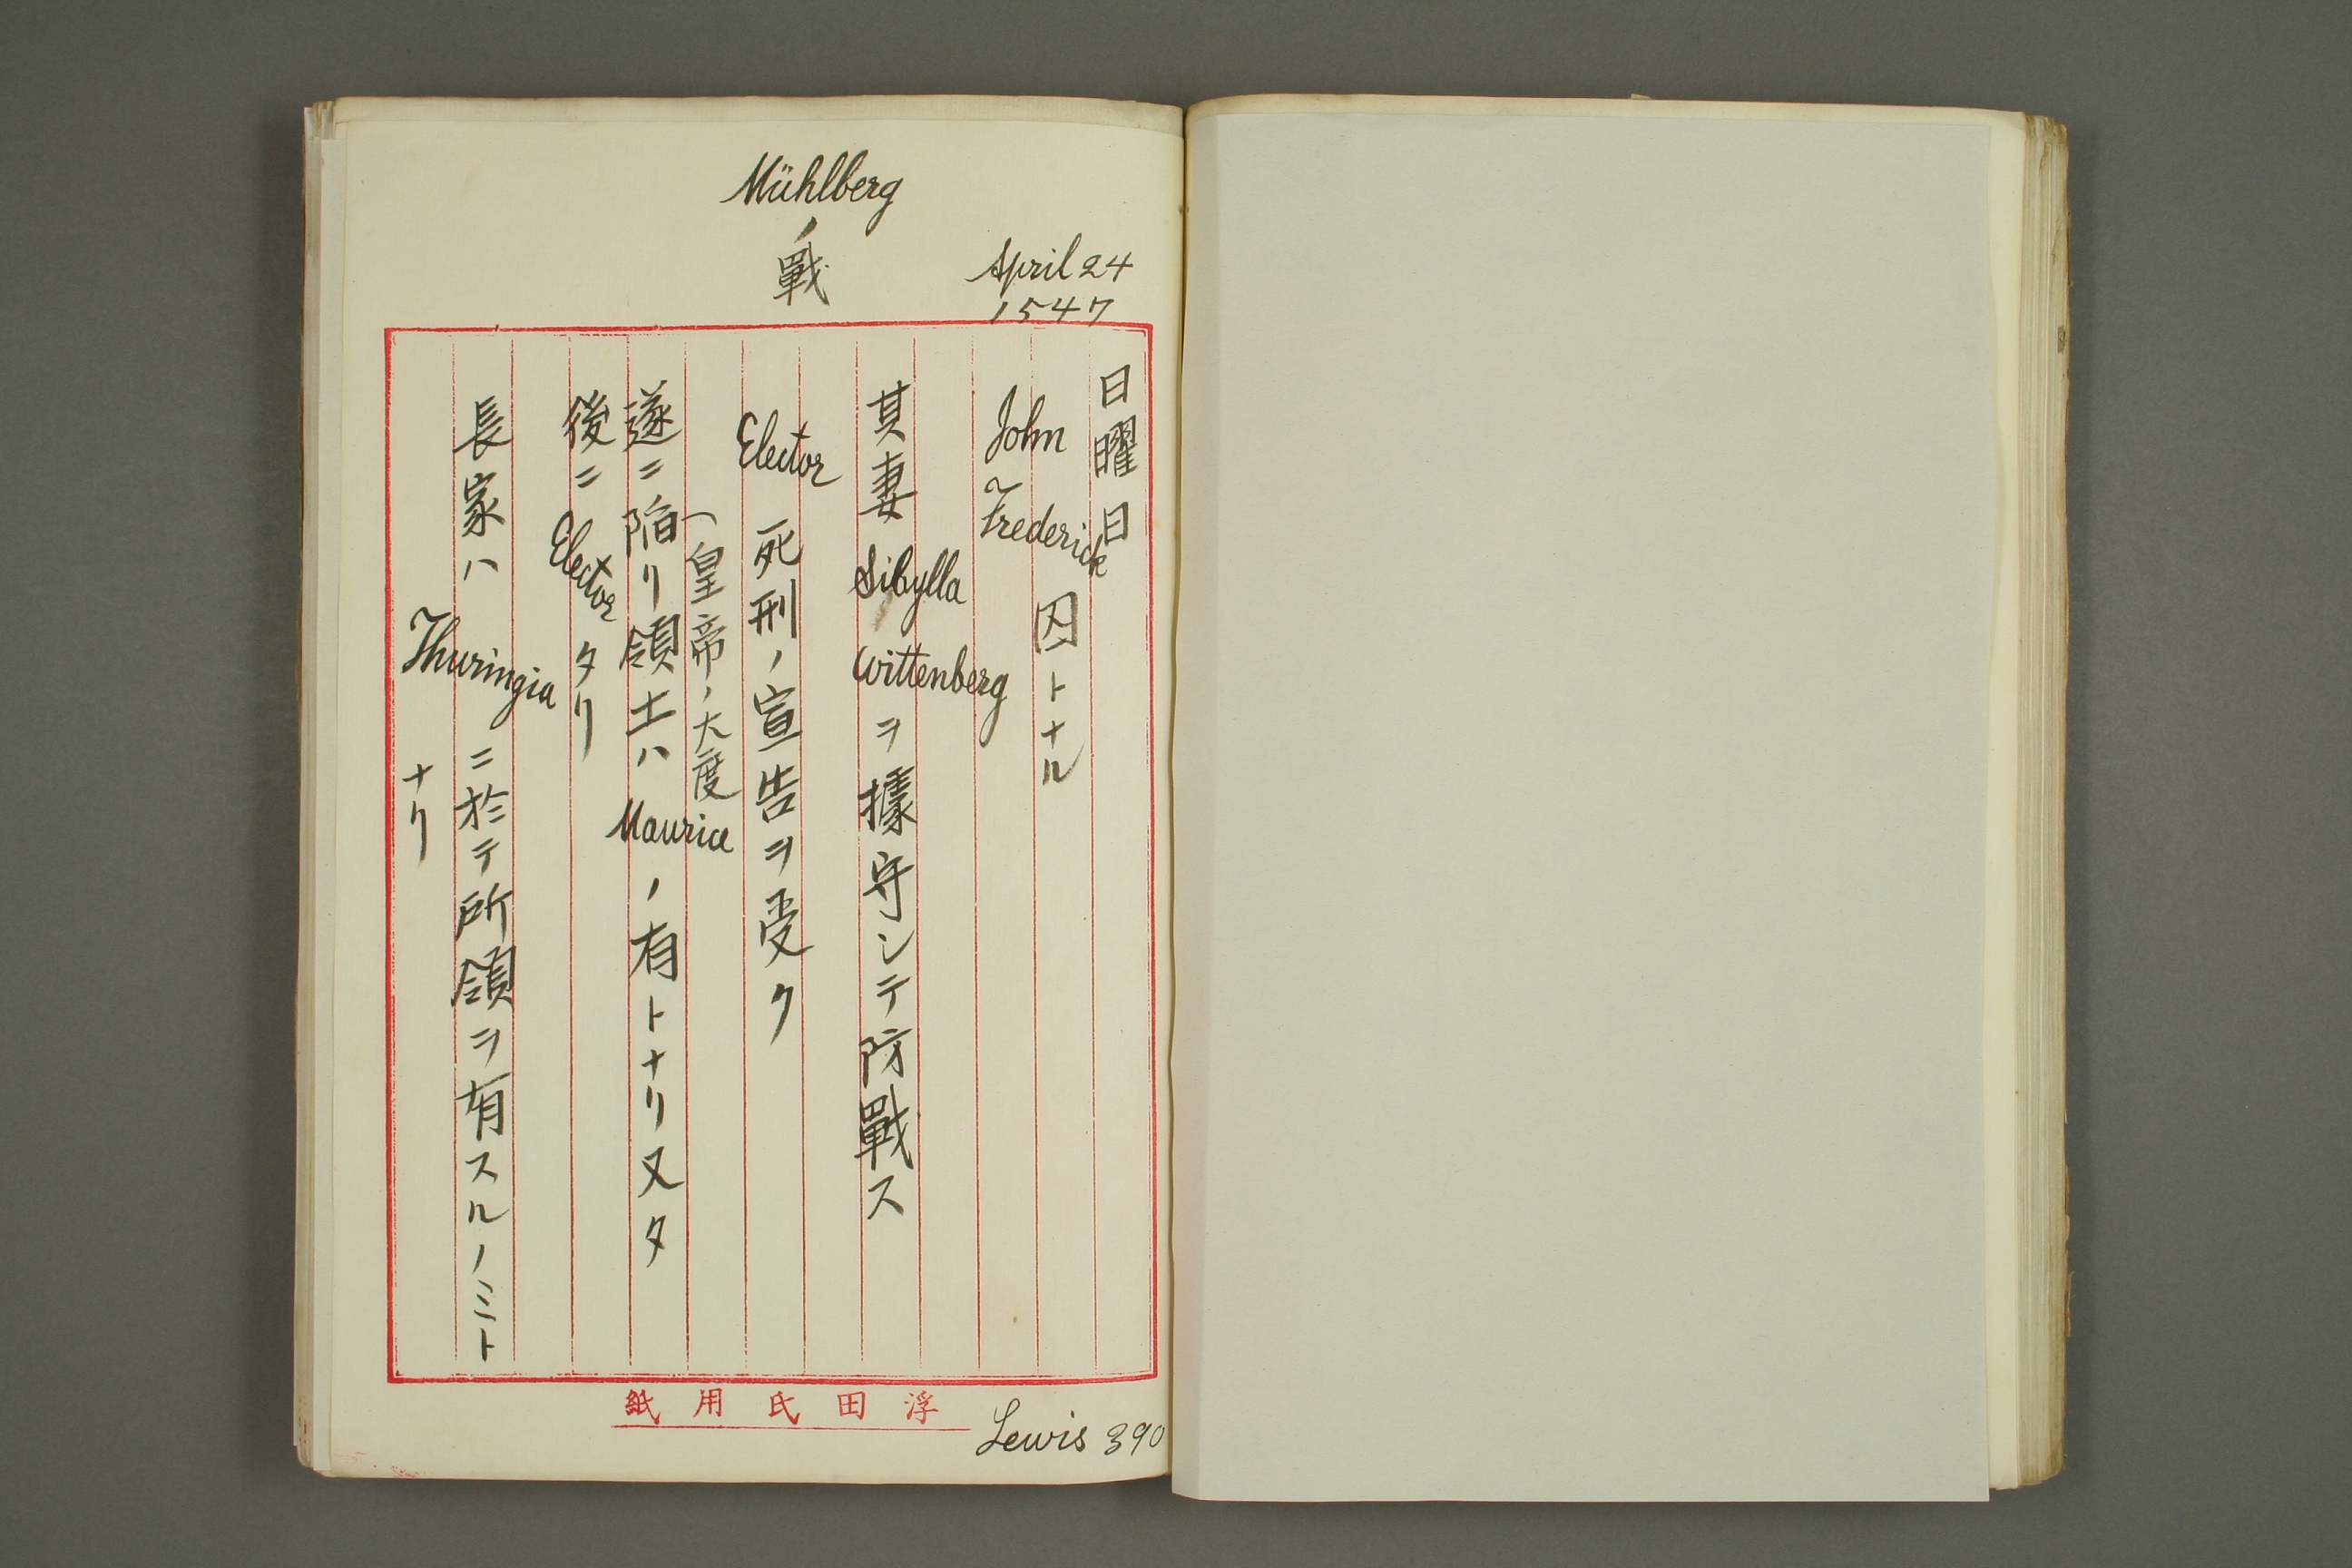 Mühlberg
ノ
戰
April 24
1547
日曜日
John Frederick 囚トナル
其妻 Sibylla Wittenberg ヲ據守シテ防戰ス
Elector 死刑ノ宣告ヲ受ク
(皇帝ノ大度
遂ニ陥リ領土ハ Maurice ノ有トナリ又タ
後ニ Elector タリ
長家ハ Thuringia ニ於テ所領ヲ有スルノミト
ナリ
浮田氏用紙
Lewis 390